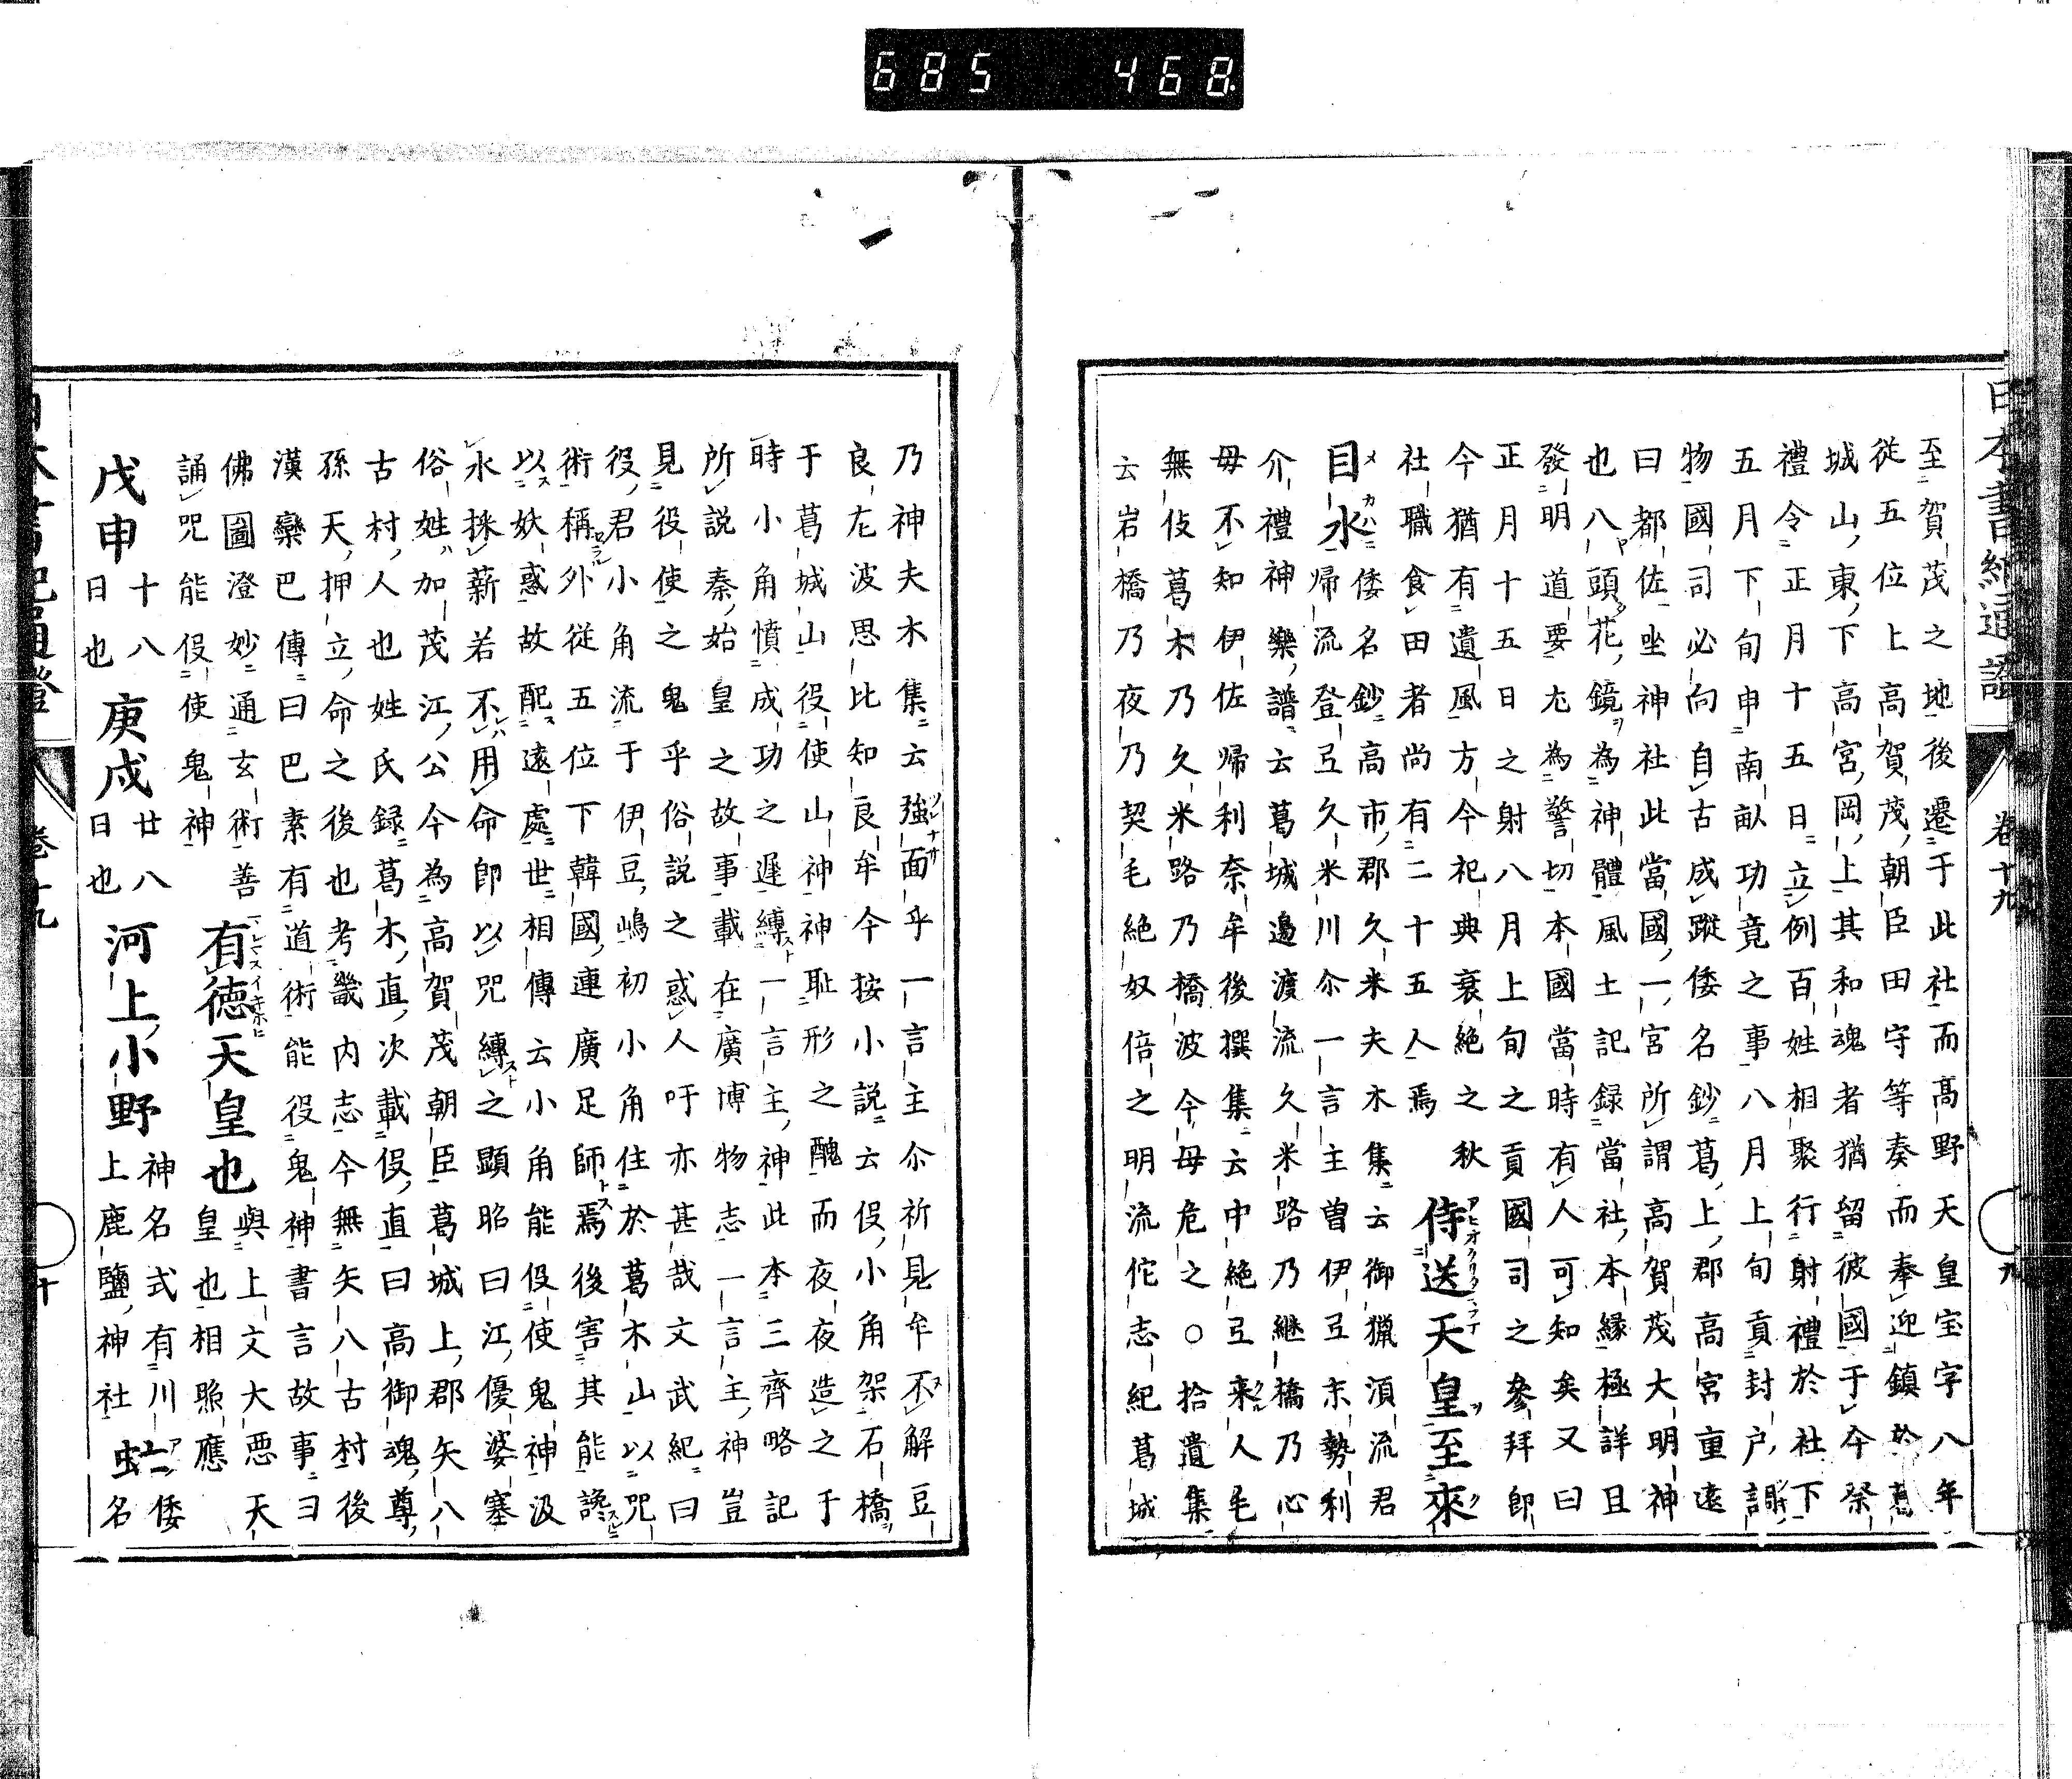 685 468
日本書紀通證 卷十九 九
至賀茂之地後遷于此社而高野天皇宝字八年
從五位上高賀茂朝臣田守等奏而奉迎鎮於葛
城山東下高宮岡上其和魂者猶留彼國于今祭
禮令正月十五日立例百姓相聚行射禮於社下
五月下旬申南畝功竟之事八月上旬貢封戸調
物國司必向自古成蹤倭名鈔葛上郡高宮重遠
曰都佐坐神社此當國一宮所謂高賀茂大明神
也八頭花鏡為神體風土記録當社本縁極詳且
發明道要尤為警切本國當時有人可知矣又曰
正月十五日之射八月上旬之貢國司之參拜即
今猶有遺風方今祀典衰絶之秋
社職食田者尚有二十五人焉 侍送天皇至來
目水 倭名鈔高市郡久米夫木集云御獵湏流君
帰流登弖久米川尒一言主曽伊弖末勢利
介禮神樂譜云葛城邉渡流久米路乃継橋乃心
毋不知伊佐帰利奈牟後撰集云中絶弖来人毛
無伎葛木乃久米路乃橋波今毋危之○拾遺集
云岩橋乃夜乃契毛絶奴倍之明流佗志紀葛城
乃神夫木集云強面乎一言主尒祈見牟不解豆
良左波思比知良牟今按小説云役小角架石橋
于葛城山役使山神神恥形之醜而夜夜造之于
時小角憤成功之遲縳一言主神此本三齊略記
所説秦始皇之故事載在廣博物志一言主神豈
見役使之鬼乎俗説之惑人吁亦甚哉文武紀曰
役君小角流于伊豆嶋初小角住於葛木山以咒
術稱外從五位下韓國連廣足師焉後害其能讒
以妖惑故配遠處世相傳云小角能役使鬼神汲
水採薪若不用命即以咒縳之顯昭曰江優婆塞
俗姓加茂江公今為高賀茂朝臣葛城上郡矢八
古村人也姓氏録葛木直次載役直曰高御魂尊
孫天押立命之後也考畿内志今無矢八古村後
漢欒巴傳曰巴素有道術能役鬼神書言故事曰
佛圖澄妙通玄術善
誦咒能役使鬼神 有徳天皇也 與上文大悪天
皇也相照應
戊申 十八
日也 庚戌 廿八
日也 河上小野 神名式有川
上鹿鹽神社 虻 倭
名
日本書紀通證 卷十九 十